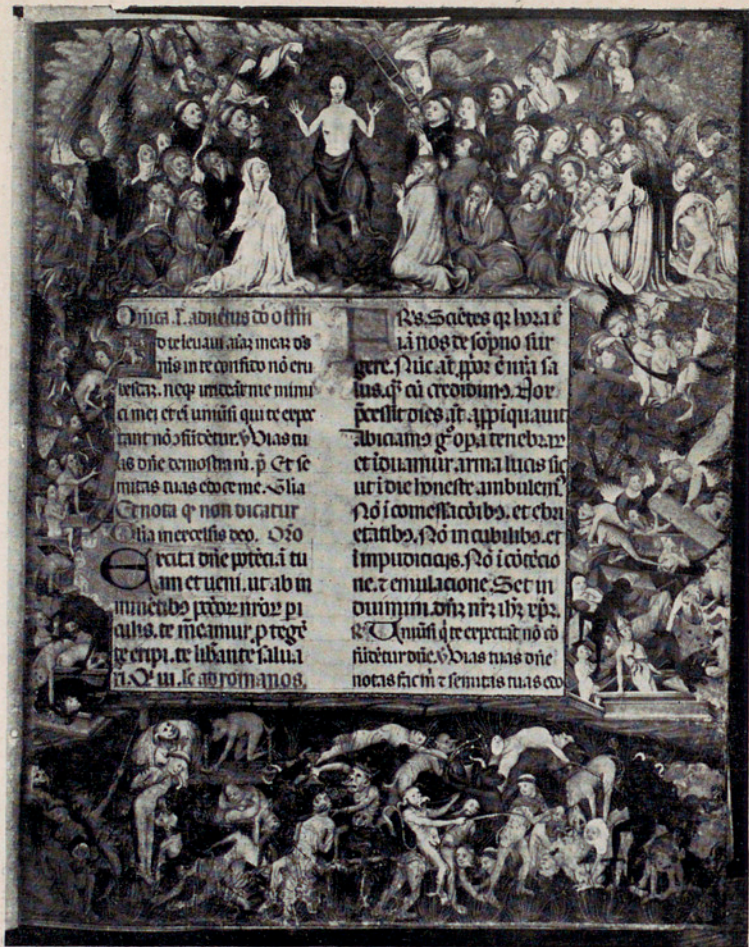 Onica .I. aduētus dō offm
d te leuaui aīaz meaz ds
mīs in te confido nō eru
bescaz. neqz irrideāt me inimi
ci mei et eī uniūsi qui te expec
tant nō ɔfūdētur. ꝟ Vias tu
as dn̄e demostra m̄. p̄ Et se
mitas tuas edoce me. Glia
Et nota qɂ non dicatur
Glīa in excelsis deo. Orō
Excita dn̄e potēciā tu
am et ueni. ut ab in
minētibɂ pccōꝝ nr̄oꝝ pi
culis. te m̄eamur. ꝓtegē
te eripi. te libāante salua
ri. Qɂ ui. lc̄ ad romanos.
FRs. Sciētes qꝛ hora ē
iā nos de sōpno sur
gere. Nūc aīt ꝓpoꝛ ē nr̄a sa
lus. qɂ cū credidimɂ. Nox
p̄cessit dies. aīt. appīquauit
abiciamɂ gͦ oꝑa tenebraꝝ
et īduamur arma lucis sic
ut ī die honeste ambulemɂ
Nō ī comessacōibɂ. et ebri
etatibɂ. Nō in cubilibɂ. et
īmpudiciciis. Nō ī cōtēcio
ne. ⁊ emulacione. Set in
duimini. dn̄z nr̄z ih̄z xp̄z.
℟ Uniūsi q̄ te expectāt nō cō
fūdētur dn̄e. ꝟ Vias tuas dn̄e
notas fac m̄ ⁊ semitas tuas edo